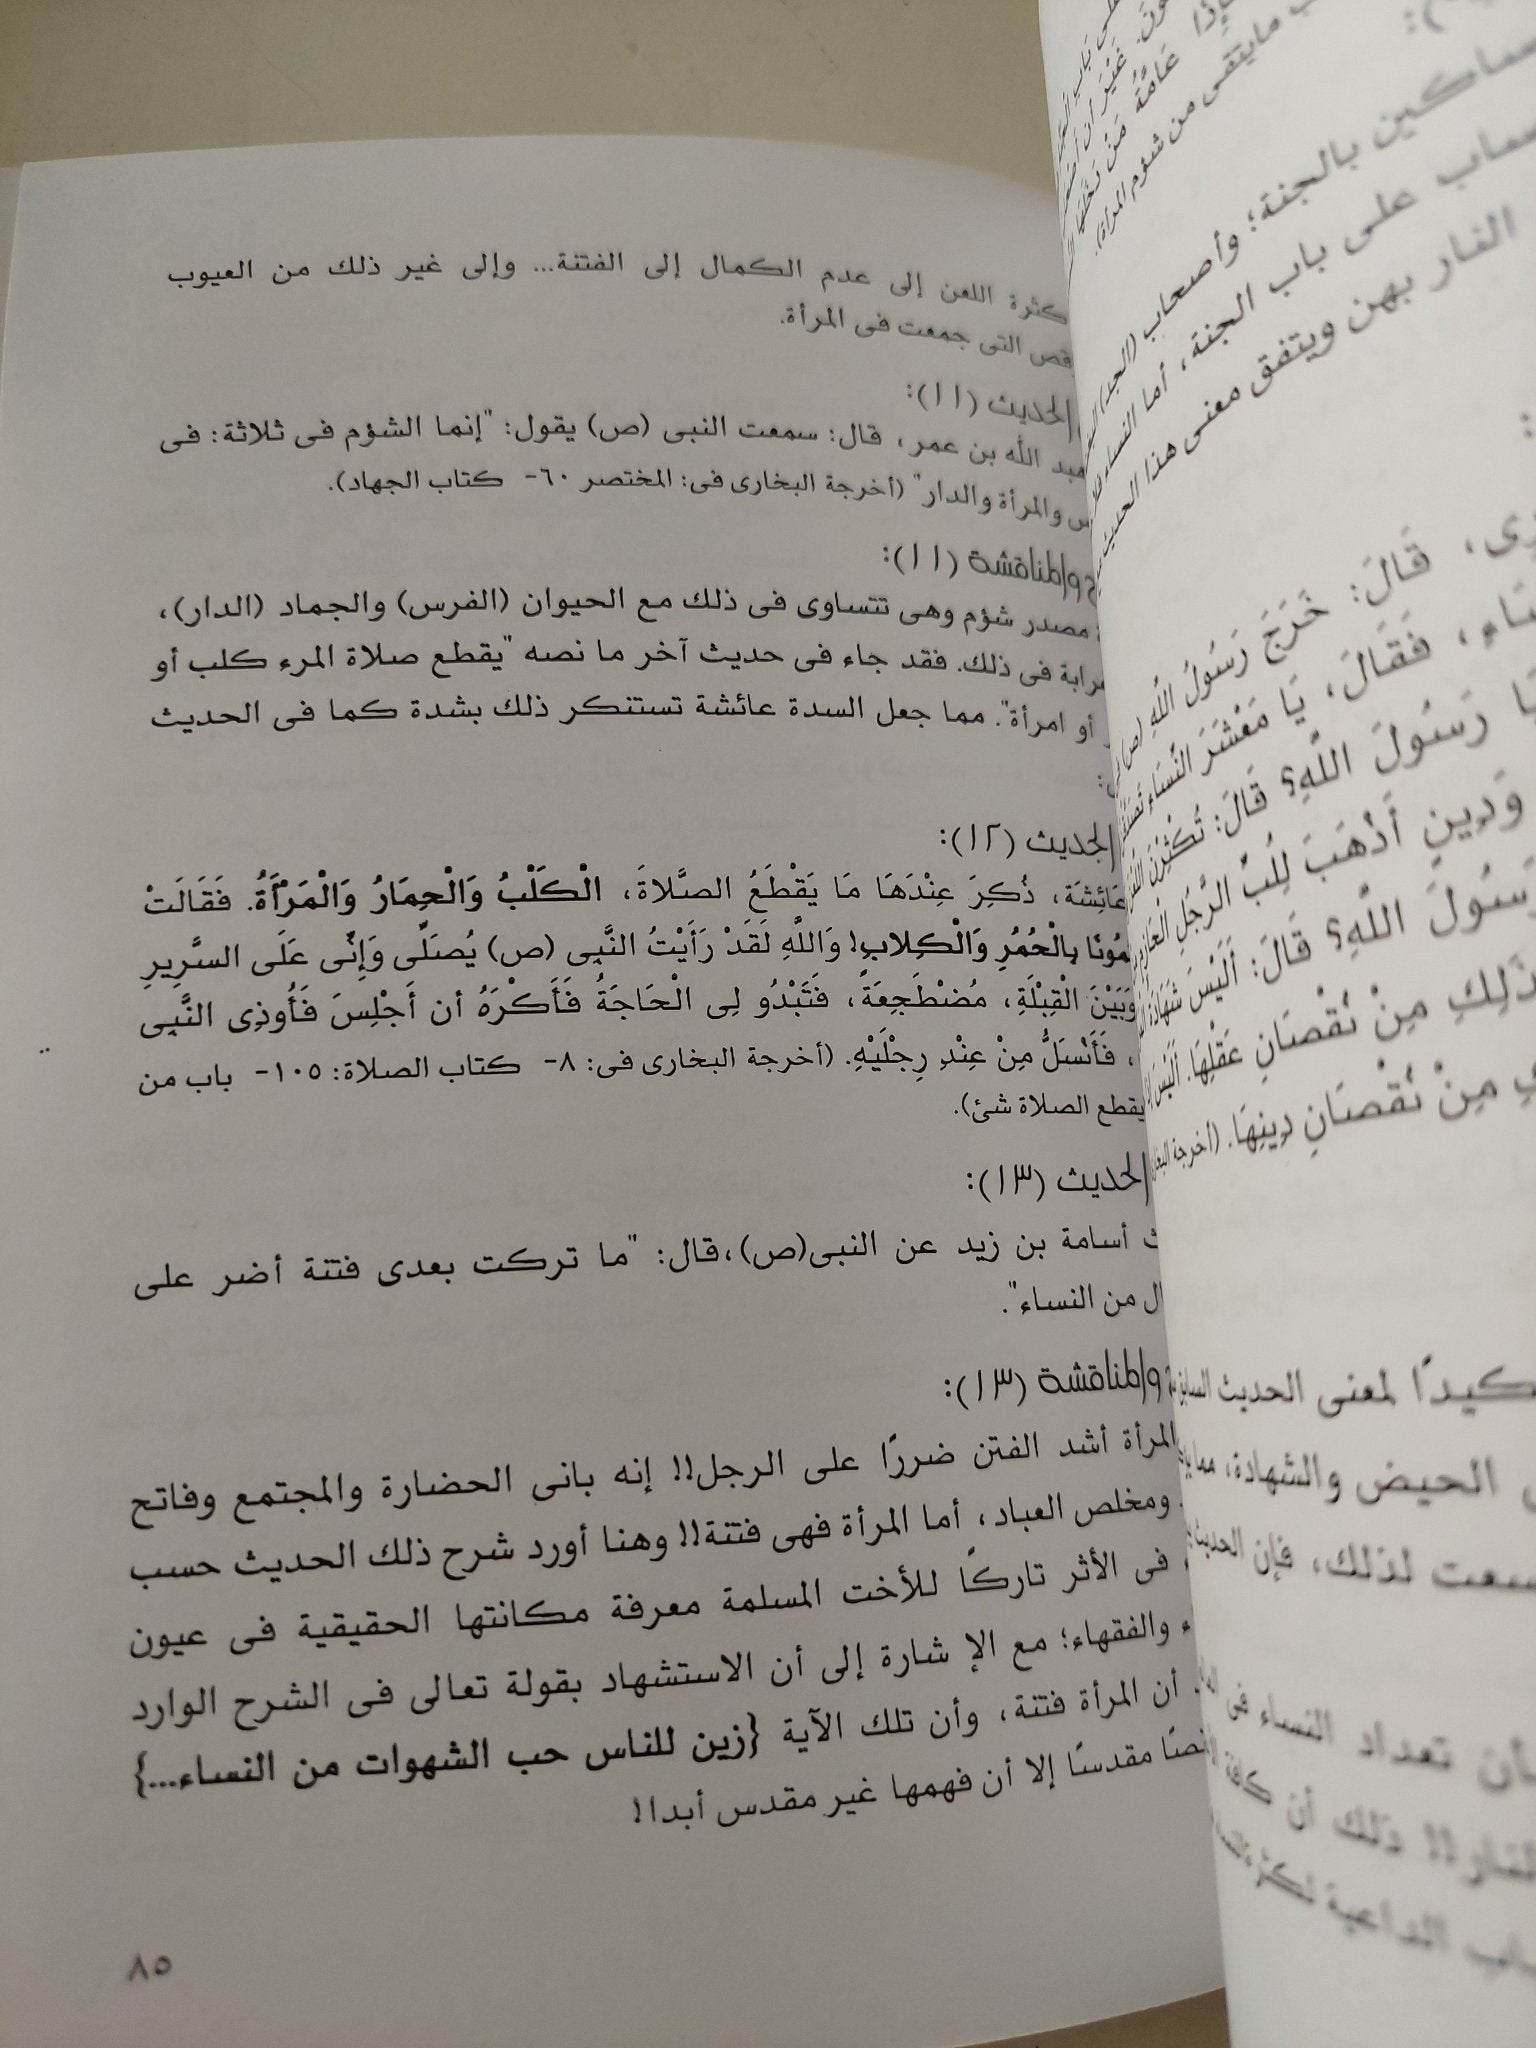 كثرة اللعن إلى عدم الكمال إلى الفتنة... وإلى غير ذلك من العيوب
التى جمعت فى المرأة.
الحديث (١١):
الله بن عمر، قال: سمعت النبى (ص) يقول: "إنما الشؤم فى ثلاثة: فى
والمرأة والدار" (أخرجة البخارى فى: المختصر ٦٠- كتاب الجهاد).
والمناقشة (١١):
مصدر شؤم وهى تتساوى فى ذلك مع الحيوان (الفرس) والجماد (الدار)،
فى ذلك. فقد جاء فى حديث آخر ما نصه "يقطع صلاة المرء كلب أو
أو امرأة". مما جعل السدة عائشة تستنكر ذلك بشدة كما فى الحديث
الحديث (١٢):
عَائِشَة، ذُكِرَ عِنْدَهَا مَا يَقْطَعُ الصَّلاةَ، الْكَلْبُ وَالْحِمَارُ وَالْمَرْأَةُ. فَقَالَتْ
بِالْحُمُرِ وَالْكِلابِ! وَاللَّهِ لَقَدْ رَأَيْتُ النَّبِى (ص) يُصَلِّى وَإِنِّى عَلَى السَّرِيرِ
وَبَيْنَ الْقِبْلَةِ، مُضْطَجِعَةً، فَتَبْدُو لِى الْحَاجَةُ فَأَكْرَهُ أن أَجْلِسَ فَأُوذِى النَّبِى
، فَأَنْسَلُّ مِنْ عِنْدِ رِجْلَيْهِ. (أخرجة البخارى فى: ٨- كتاب الصلاة: ١٠٥- باب من
يقطع الصلاة شئ).
الحديث (١٣):
أسامة بن زيد عن النبى(ص)،قال: "ما تركت بعدى فتنة أضر على
من النساء".
والمناقشة (١٣):
المرأة أشد الفتن ضررًا على الرجل!! إنه بانى الحضارة والمجتمع وفاتح
ومخلص العباد، أما المرأة فهى فتنة!! وهنا أورد شرح ذلك الحديث حسب
فى الأثر تاركًا للأخت المسلمة معرفة مكانتها الحقيقية فى عيون
والفقهاء؛ مع الإ شارة إلى أن الاستشهاد بقولة تعالى فى الشرح الوارد
أن المرأة فتنة، وأن تلك الآية {زين للناس حب الشهوات من النساء...}
نصًا مقدسًا إلا أن فهمها غير مقدس أبدا!
٨٥
مايتقى من شؤم المرأة).
بالجنة؛ وأصحاب (الجد)
على باب الجنة، أما النساء
النار بهن ويتفق معنى هذا الحديث
قَالَ: خَرَجَ رَسُولُ اللَّهِ (ص)
فَقَالَ، يَا مَعْشَرَ النِّسَاءِ
رَسُولَ اللَّهِ؟ قَالَ: تُكْثِرْنَ
وَدِينٍ أَذْهَبَ لِلُبِّ الرَّجُلِ
رَسُولَ اللَّهِ؟ قَالَ: أَلَيْسَ شَهَادَةُ
ذَلِكِ مِنْ نُقْصَانِ عَقْلِهَا. أَلَيْسَ
مِنْ نُقْصَانِ دِينِهَا. (أخرجة
لمعنى الحديث السابق
الحيض والشهادة،
لذلك، فإن الحديث
تعداد النساء فى
ذلك أن كافة
الداعية